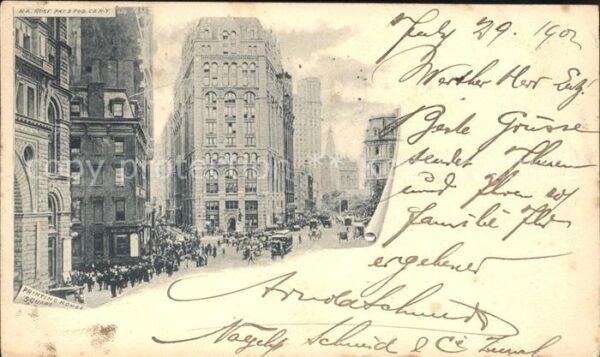 H.A. ROST. PAT & PUB. CO. N.Y.
July 29. 1902
Werther Herr
Beste Grüsse
sendet Ihnen
und Ihrer
Familie Ihr
ergebener
Arnold Schmidt
Schmid & Cie
PRINTING HOUSE
SQUARE
copyright protection